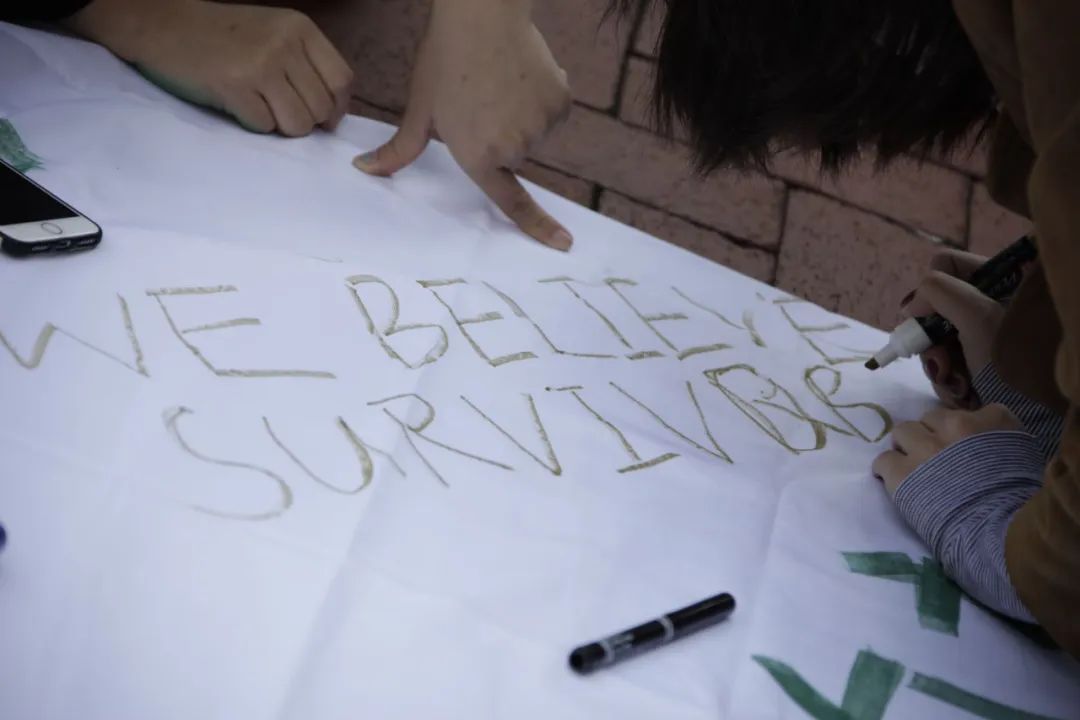 WE BELIEVE
SURVIVOR